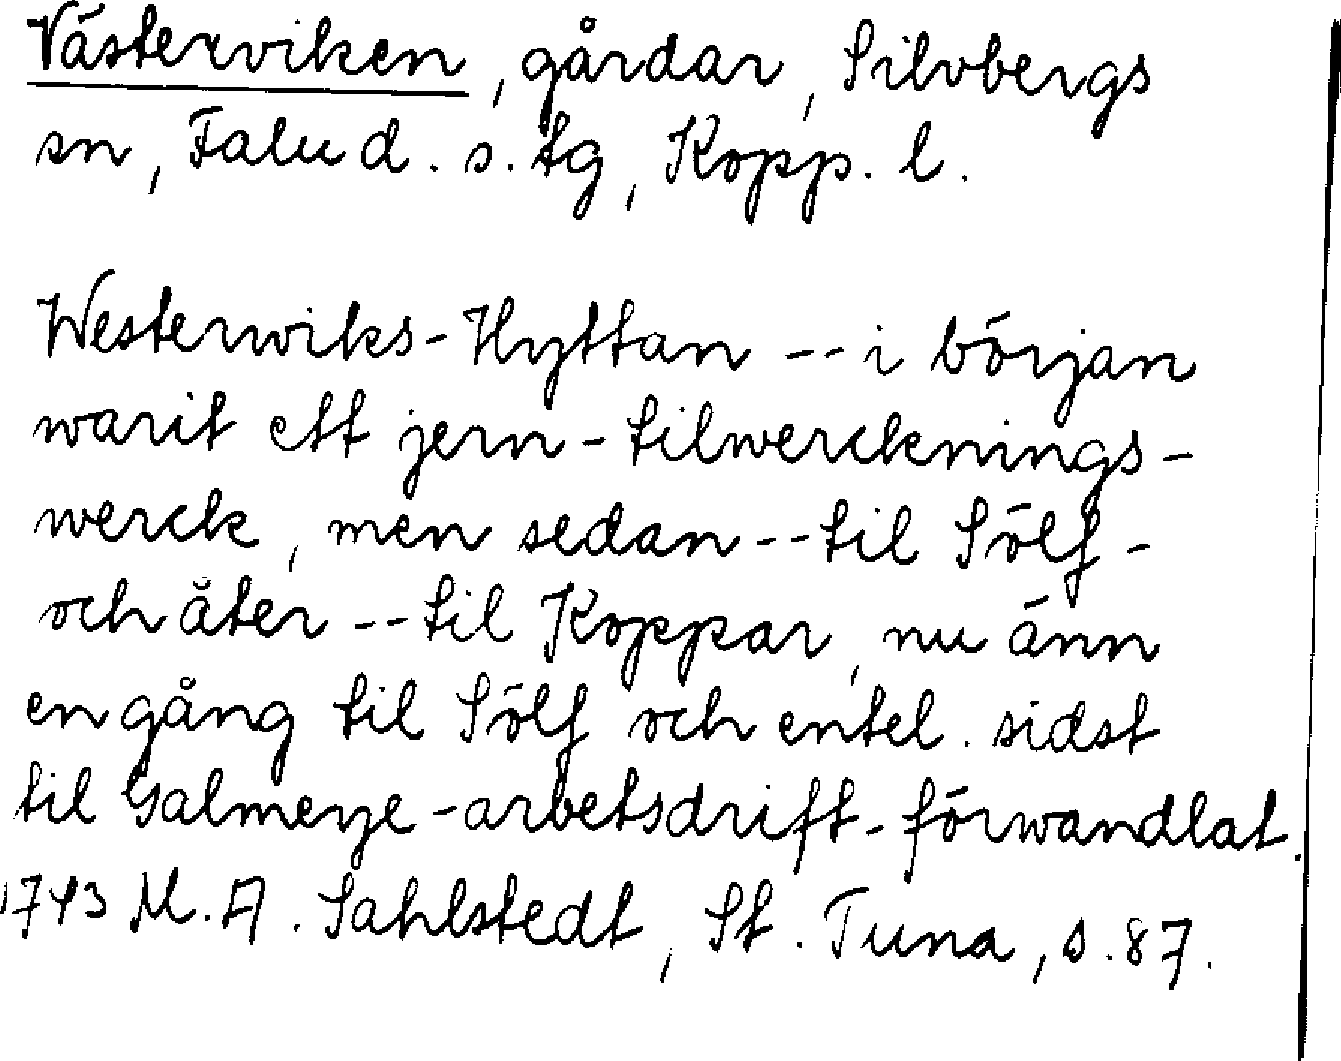 Västerviken, gårdar, Silvbergs
sn, Falu d. s. tg, Kopp. l.
Westerwiks-Hyttan -- i början
warit ett jern-tilwercknings-
werck, men sedan -- til Sölf-
och åter -- til Koppar, nu änn
en gång til Sölf och entel. sidst
til Galmeye-arbetsdrift-förwandlat.
1743 M. A. Sahlstedt, St. Tuna, s. 87.